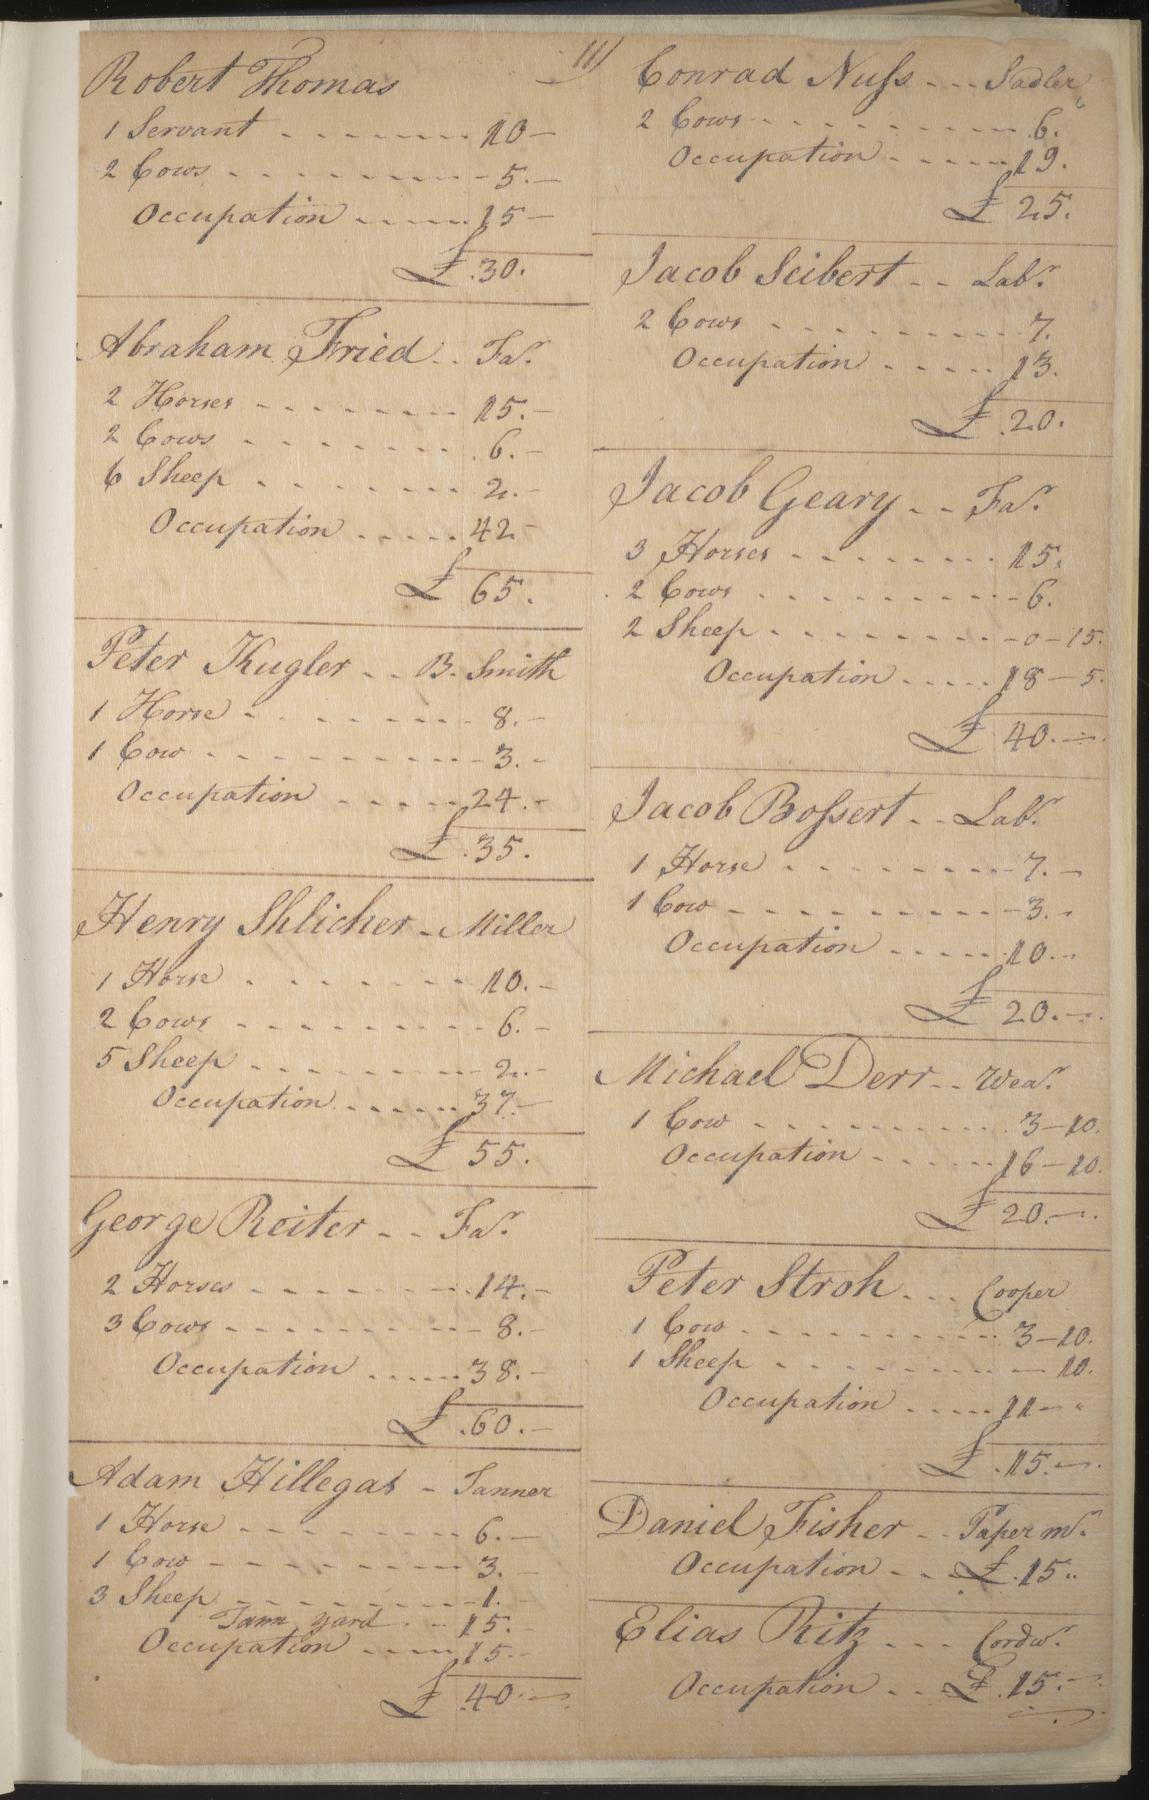 111
Robert Thomas
1 Servant - - - - - - - 10 -
2 Cows - - - - - - - - - 5. -
Occupation - - - - - 15 -
£ 30.
Abraham Fried - - Far.
2 Horses - - - - - - - - 15. -
2 Cows - - - - - - - - 6. -
6 Sheep - - - - - - - - 2. -
Occupation - - - - - 42 -
£ 65.
Peter Kugler - - B. Smith
1 Horse - - - - - - - - 8. -
1 Cow - - - - - - - - - 3. -
Occupation - - - - - 24. -
£ 35.
Henry Shlicher - - Miller
1 Horse - - - - - - - - 10. -
2 Cows - - - - - - - - - 6. -
5 Sheep - - - - - - - - 2. -
Occupation - - - - - - 37. -
£ 55.
George Reiter - - - Far.
2 Horses - - - - - - - - 14. -
3 Cows - - - - - - - - - 8. -
Occupation - - - - - 38. -
£ 60. -
Adam Hillegas - Tanner
1 Horse - - - - - - - - 6. -
1 Cow - - - - - - - - - 3. -
3 Sheep - - - - - - - - 1. -
Tann yard - - 15. -
Occupation - - - - 15. -
£ 40. -
Conrad Nuſs - - - Sadler
2 Cows - - - - - - - - - 6.
Occupation - - - - - 19.
£ 25.
Jacob Seibert - - Labr.
2 Cows - - - - - - - - 7.
Occupation - - - - - 13.
£ 20.
Jacob Geary - - Far.
3 Horses - - - - - - - - 15.
2 Cows - - - - - - - - - 6.
2 Sheep - - - - - - - - - 0 - 15.
Occupation - - - - - 18 - 5.
£ 40. -
Jacob Boſsert - - Labr.
1 Horse - - - - - - - - 7. -
1 Cow - - - - - - - - - 3. -
Occupation - - - - - 10. -
£ 20. -
Michael Derr - - Wear.
1 Cow - - - - - - - - - 3 - 10.
Occupation - - - - - 16 - 10.
£ 20. -
Peter Stroh - - - Cooper
1 Cow - - - - - - - - - 3 - 10.
1 Sheep - - - - - - - - - 10.
Occupation - - - - - 11 - -
£ 15. -
Daniel Fisher - - Paper mr.
Occupation - - - £ 15.
Elias Ritz - - - Cordwr.
Occupation - - £ 15. -